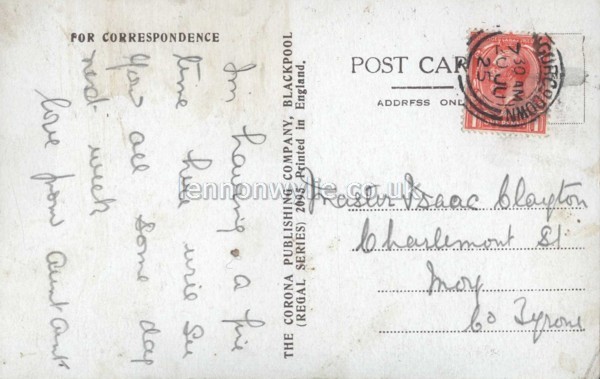 FOR CORRESPONDENCE
Im having a fine
time here will see
you all some day
next week
love from Aunt
THE CORONA PUBLISHING COMPANY, BLACKPOOL
(REGAL SERIES) 2095 Printed in England.
POST CARD
ADDRESS ONLY
7 30 PM
10 JU
25
Master Isaac Clayton
Charlemont St
Moy
Co Tyrone
lennonwylie.co.uk